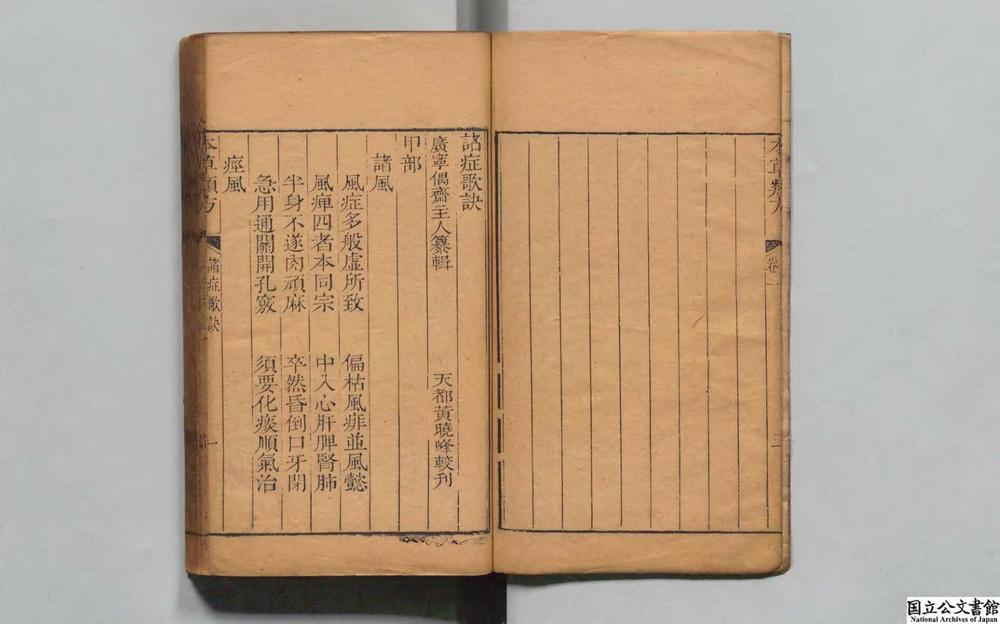 本草類方
卷一
二
諸症歌訣
廣寧偶齋主人纂輯 天都黃曉峰較刋
甲部
諸風
風症多般虛所致 偏枯風痱並風懿
風痺四者本同宗 中入心肝脾腎肺
半身不遂肉頑麻 卒然昏倒口牙閉
急用通關開孔竅 須要化痰順氣治
痙風
本草類方 諸症歌訣 一
国立公文書館
National Archives of Japan